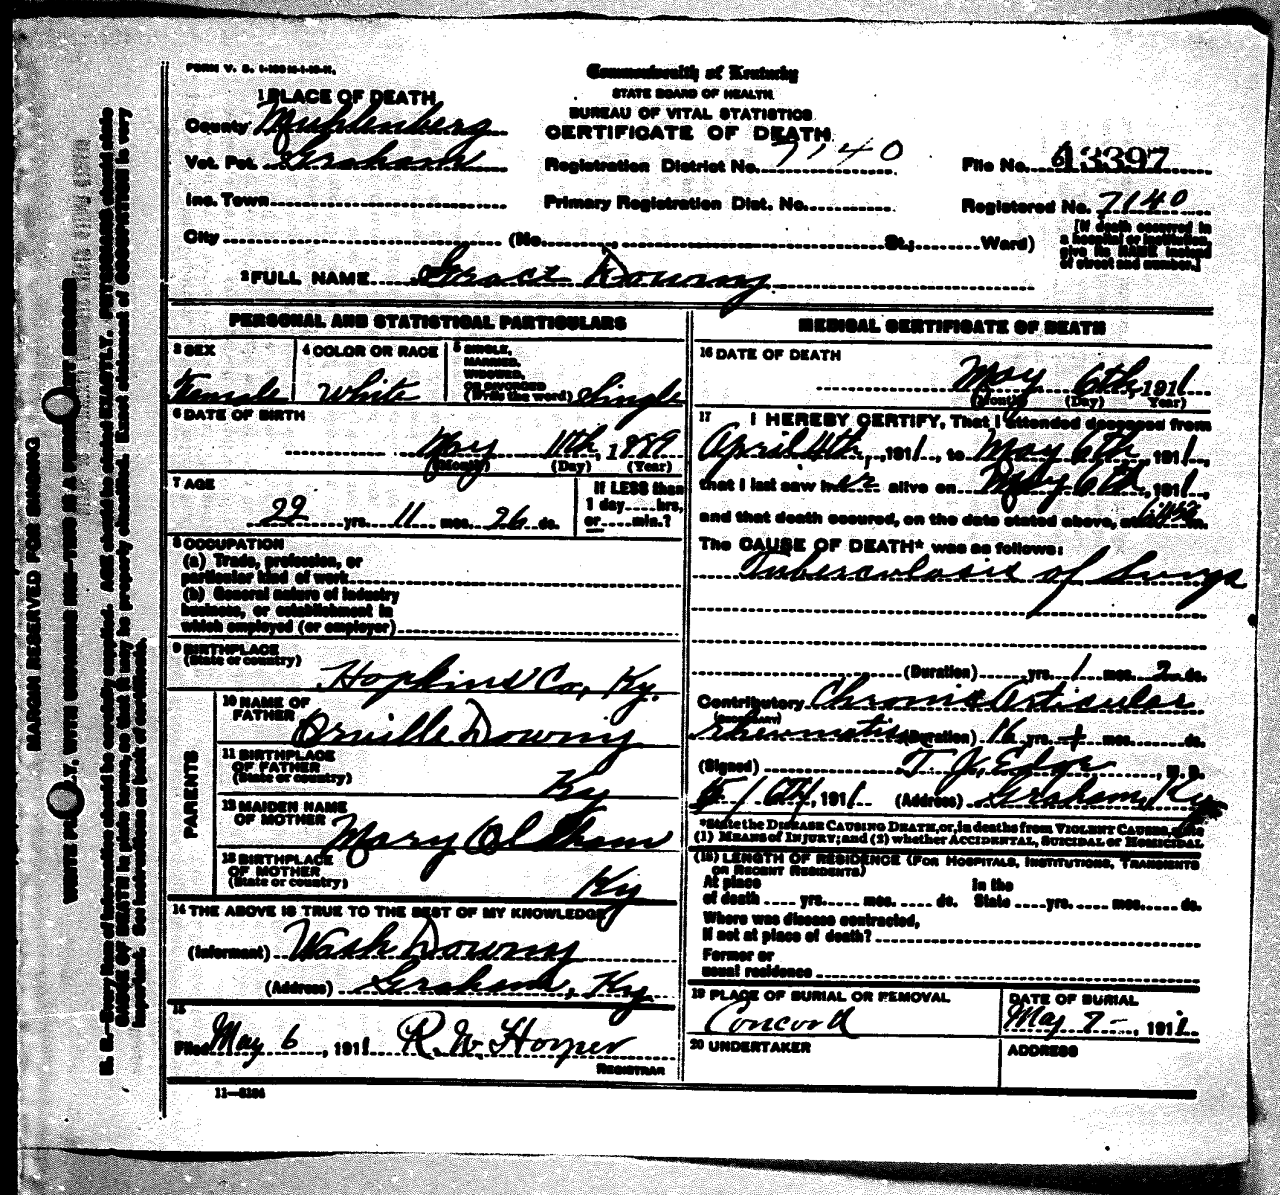 FORM V. S. 1-
Commonwealth of Kentucky
STATE BOARD OF HEALTH
BUREAU OF VITAL STATISTICS
CERTIFICATE OF DEATH
1 PLACE OF DEATH
County Muhlenberg
Vot. Pct. Graham
Registration District No. 7140
File No. 13397
Inc. Town
Primary Registration Dist. No.
Registered No. 7140
City (No. , St.; Ward)
[If death occurred in a hospital or institution, give its NAME instead of street and number.]
2 FULL NAME Grace Downy
PERSONAL AND STATISTICAL PARTICULARS
3 SEX
Female
4 COLOR OR RACE
White
5 SINGLE, MARRIED, WIDOWED, OR DIVORCED (Write the word) Single
6 DATE OF BIRTH
May 11th, 1889
(Month) (Day) (Year)
7 AGE
22 yrs. 11 mos. 26 ds.
If LESS than 1 day hrs, or min.?
8 OCCUPATION
(a) Trade, profession, or
particular kind of work
(b) General nature of industry
business, or establishment in
which employed (or employer)
9 BIRTHPLACE
(State or country)
Hopkins Co, Ky.
PARENTS
10 NAME OF FATHER
Orville Downy
11 BIRTHPLACE OF FATHER
(State or country)
Ky
12 MAIDEN NAME OF MOTHER
Mary Oldham
13 BIRTHPLACE OF MOTHER
(State or country)
Ky
14 THE ABOVE IS TRUE TO THE BEST OF MY KNOWLEDGE
(Informant) Wash Downy
(Address) Graham, Ky
15
Filed May 6, 1911 R. W. Hooper
REGISTRAR
11-
MEDICAL CERTIFICATE OF DEATH
16 DATE OF DEATH
May 6th, 1911
(Month) (Day) Year)
17 I HEREBY CERTIFY, That I attended deceased from
April 4th, 1911, to May 6th, 1911,
that I last saw her alive on May 6th, 1911,
and that death occured, on the date stated above, at m.
The CAUSE OF DEATH* was as follows:
Tuberculosis of Lungs
(Duration) yrs. 1 mos. 2 ds.
Contributory Chronic Articular
(SECONDARY)
Rheumatism (Duration) 16 yrs. + mos. ds.
(Signed) T. J. Edge, M. D.
5/6th, 1911 (Address) Graham, Ky
*State the DISEASE CAUSING DEATH, or, in deaths from VIOLENT CAUSES, state
(1) MEANS OF INJURY; and (2) whether ACCIDENTAL, SUICIDAL or HOMICIDAL
(18) LENGTH OF RESIDENCE (FOR HOSPITALS, INSTITUTIONS, TRANSIENTS
OR RECENT RESIDENTS)
At place of death yrs. mos. ds.
In the State yrs. mos. ds.
Where was disease contracted,
If not at place of death?
Former or
usual residence
19 PLACE OF BURIAL OR REMOVAL
Concord
DATE OF BURIAL
May 7- 1911
20 UNDERTAKER
ADDRESS
MARGIN RESERVED FOR BINDING
N. B.—Every item of information should be carefully supplied. AGE should be stated EXACTLY. PHYSICIANS should state
CAUSE OF DEATH in plain terms, so that it may be properly classified. Exact statement of OCCUPATION is very
important. See instructions on back of certificate.